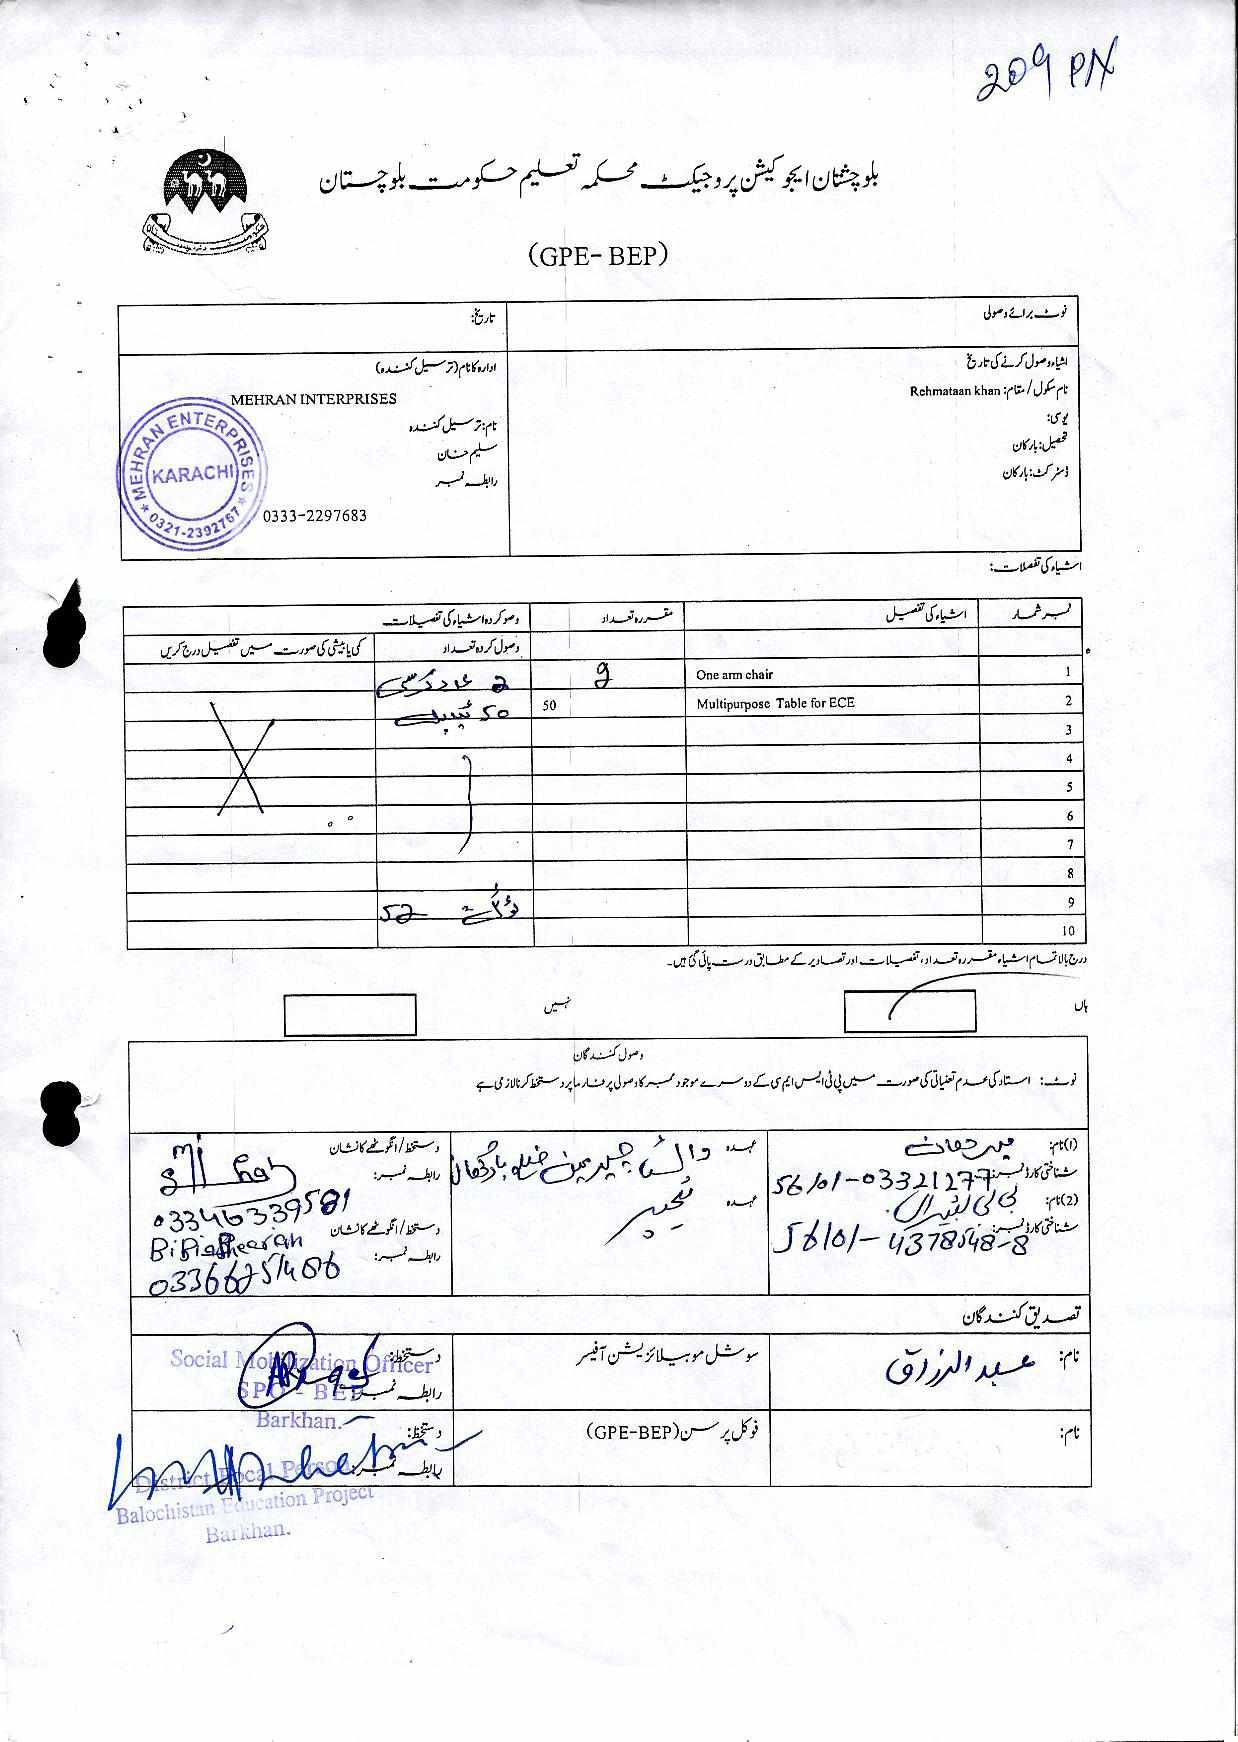 209 PN
بلوچستان ایجوکیشن پروجیکٹ محکمہ تعلیم حکومت بلوچستان
(GPE- BEP)
نوٹ برائے وصولی
تاریخ:
اشیاء وصول کرنے کی تاریخ
نام سکول / مقام: Rehmataan khan
یوسی:
تحصیل: بارکان
ڈسٹرکٹ: بارکان
ادارہ کا نام (ترسیل کنندہ)
MEHRAN INTERPRISES
نام: ترسیل کنندہ
سلیم خان
رابطہ نمبر
0333-2297683
MEHRAN ENTERPRISES
KARACHI
0321-2392767
اشیاء کی تفصلات:
نمبر شمار اشیاء کی تفصیل مقررہ تعداد وصو کردہ اشیاء کی تفصیلات
وصول کردہ تعداد کمی یا بیشی کی صورت میں تفصیل درج کریں
1 One arm chair 2 2 عدد کرسی
2 Multipurpose Table for ECE 50 50 ٹیبل
3
4
5
6
7
8
9 52
10
درج بالا تمام اشیاء مقررہ تعداد، تفصیلات اور تصاویر کے مطابق درست پائی گئی ہیں۔
ہاں
نہیں
وصول کنندگان
نوٹ: استاد کی عدم تعیناتی کی صورت میں پی ٹی ایس ایم سی کے دوسرے موجود ممبر کا وصولی پر فارما پر دستخط کرنا لازمی ہے
(1) نام:
عہدہ وائس چیرمین ضلع بارکھان
دستخط / انگوٹھے کا نشان
شناختی کارڈ نمبر: 56101-03321277
رابطہ نمبر: 03346339581
(2) نام: بی بی شیراں
عہدہ ٹیچر
دستخط / انگوٹھے کا نشان
شناختی کارڈ نمبر: 56101-4378548-8
رابطہ نمبر: 03366751486
تصدیق کنندگان
نام: عبدالرزاق
سوشل موبیلائزیشن آفیسر
دستخط:
رابطہ نمبر:
Social Mobilization Officer
SPO - BEP
Barkhan.
نام:
فوکل پرسن (GPE-BEP)
دستخط:
رابطہ نمبر:
District Focal Person
Balochistan Education Project
Barkhan.